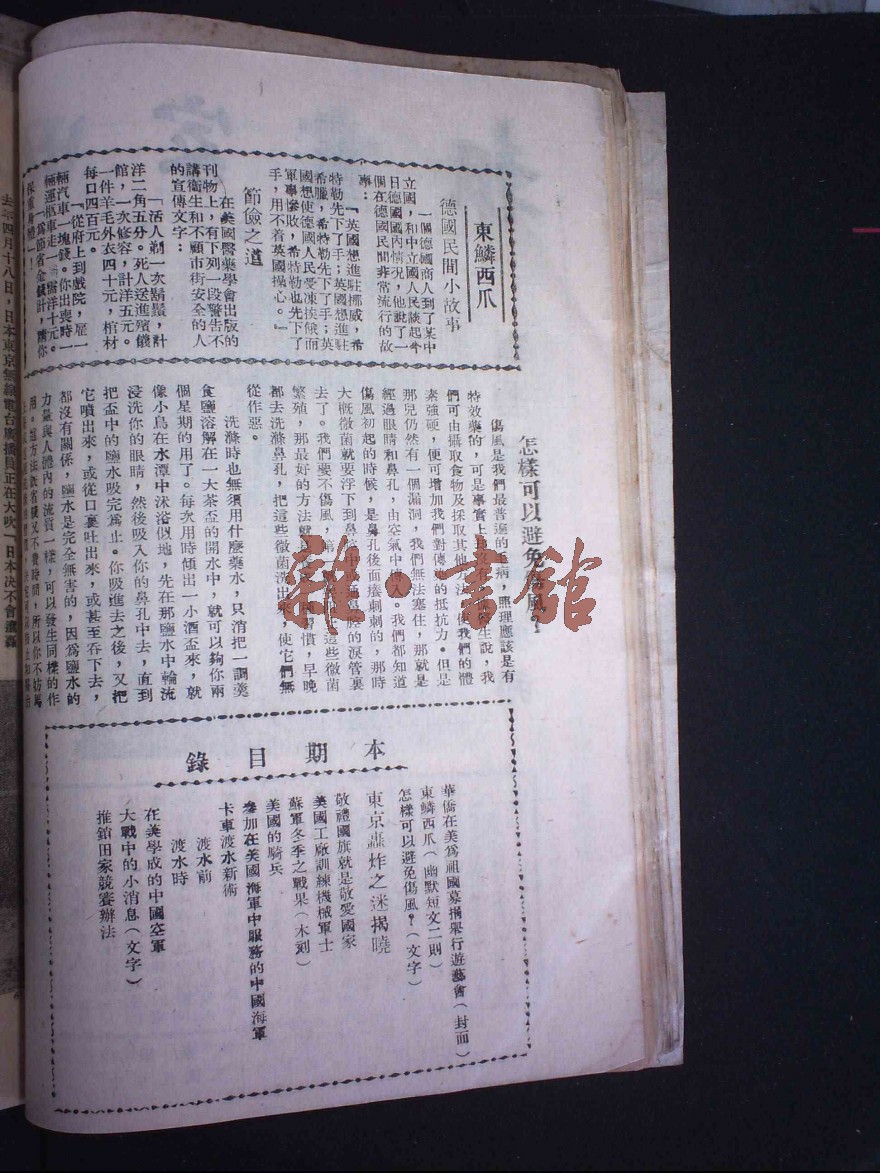 東鱗西爪
德國民間小故事
一個德國商人到了某中
立國，和中立國人民談起今
日德國國內情況，他說了一
個在德國民間非常流行的故
事：
「英國想進駐挪威，希
特勒先下了手；英國想進駐
希臘，希特勒先下了手；英
國想使德國人民受凍挨餓而
軍事慘敗，希特勒也先下了
手，用不着英國操心。』
節儉之道
在美國醫藥學會出版的
刊物上，有下列一段警告不
講衛生和不顧市街安全的人
的宣傳文字：
「活人剃一次鬍鬚，計
洋二角五分。死人送進殯儀
館，一次修容，計洋五元。
一件羊毛外衣四十元，棺材
每口四百元。
「從府上到戲院，雇一
輛汽車一塊錢。你出喪時一
輛運柩車走一需洋十元。
「為節省金錢計，請你
保重身體！」
怎樣可以避免傷風？
傷風是我們最普遍的毛病，照理應該是有
特效藥的，可是事實上沒有。保衛生說，我
們可由攝取食物及採取其他方法，使我們的體
素強硬，便可增加我們對傳染的抵抗力。但是
那兒仍然有一個漏洞，我們無法塞住，那就是
經過眼睛和鼻孔，由空氣中傳入。我們都知道
傷風初起的時候，是鼻孔後面癢刺刺的，那時
大概微菌就要浮下到鼻腔中通鼻腔的淚管裏
去了。我們要不傷風，第這些微菌
繁殖，那最好的方法就是習慣，早晚
都去洗滌鼻孔，把這些微菌洗出來，使它們無
從作惡。
洗滌時也無須用什麼藥水，只消把一調羹
食鹽溶解在一大茶盃的開水中，就可以夠你兩
個星期的用了。每次用時傾出一小酒盃來，就
像小鳥在水潭中沐浴似地，先在那鹽水中輪流
浸洗你的眼睛，然後吸入你的鼻孔中去，直到
把盃中的鹽水吸完為止。你吸進去之後，又把
它噴出來，或從口裏吐出來，或甚至吞下去，
都沒有關係，鹽水是完全無害的，因為鹽水的
力量與人體內的流質一樣，可以發生同樣的作
用。這方法既省錢又不費時間，所以你不妨馬
本期目錄
華僑在美為祖國募捐舉行遊藝會（封面）
東鱗西爪（幽默短文二則）
怎樣可以避免傷風？（文字）
東京轟炸之迷揭曉
敬禮國旗就是敬愛國家
美國工廠訓練機械軍士
蘇軍冬季之戰果（木刻）
美國的騎兵
參加在美國海軍中服務的中國海軍
卡車渡水新術
渡水前
渡水時
在美學成的中國空軍
大戰中的小消息（文字）
推銷田家競賽辦法
去年四月十八日，日本東京無線電台廣播員正在大吹「日本決不會遭轟
雜·書館